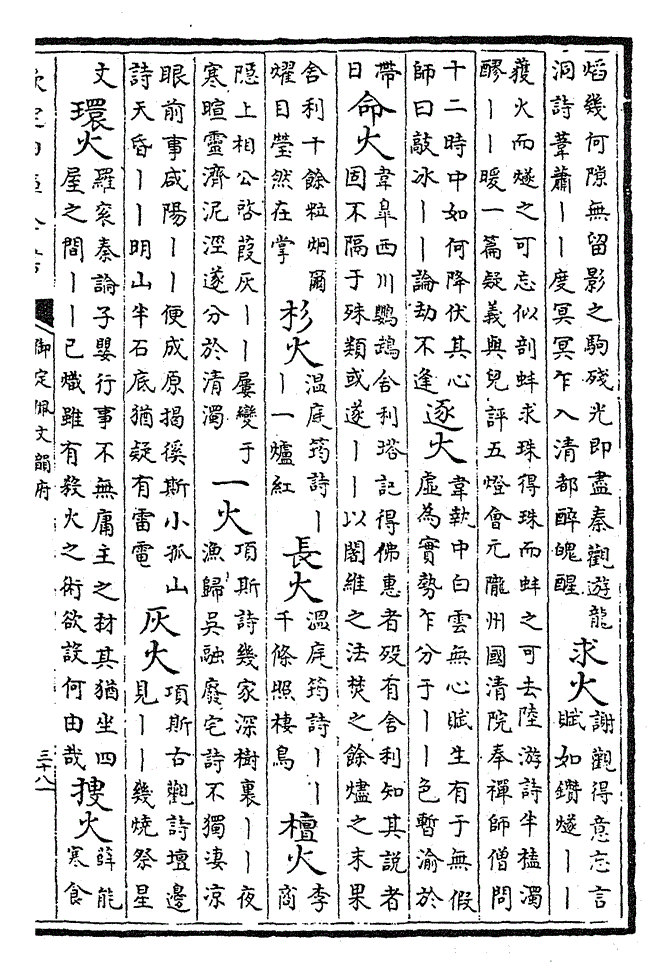 焰幾何隙無留影之駒殘光即盡秦觀遊龍
洞詩葦蕭丨丨度冥冥乍入清都醉魄醒
求火
謝觀得意忘言
賦如鑽燧丨丨
獲火而燧之可忘似剖蚌求珠得珠而蚌之可去陸游詩半榼濁
醪丨丨暖一篇疑義與兒評五燈會元隴州國清院奉禪師僧問
十二時中如何降伏其心
師曰敲冰丨丨論劫不逢
逐火
韋執中白雲無心賦生有于無假
虛為實勢乍分于丨丨色暫渝於
帶
日
命火
韋皋西川鸚鵡舍利塔記得佛惠者歿有舍利知其說者
固不隔于殊類或遂丨丨以闍維之法焚之餘燼之末果
舍利十餘粒炯爾
耀日瑩然在掌
杉火
溫庭筠詩丨
丨一爐紅
長火
溫庭筠詩丨丨
千條照棲鳥
檀火
李
商
隱上相公啓葭灰丨丨屢變于
寒暄靈濟泥涇遂分於清濁
一火
項斯詩幾家深樹裏丨丨夜
漁歸吳融廢宅詩不獨淒涼
眼前事咸陽丨丨便成原揭徯斯小孤山
詩天昏丨丨明山半石底猶疑有雷電
灰火
項斯古觀詩壇邊
見丨丨幾燒祭星
文
環火
羅衮秦論子嬰行事不無庸主之材其猶坐四
屋之間丨丨已熾雖有殺火之術欲設何由哉
搜火
薛能
寒食
欽定四庫全書
御定佩文韻府
三十八